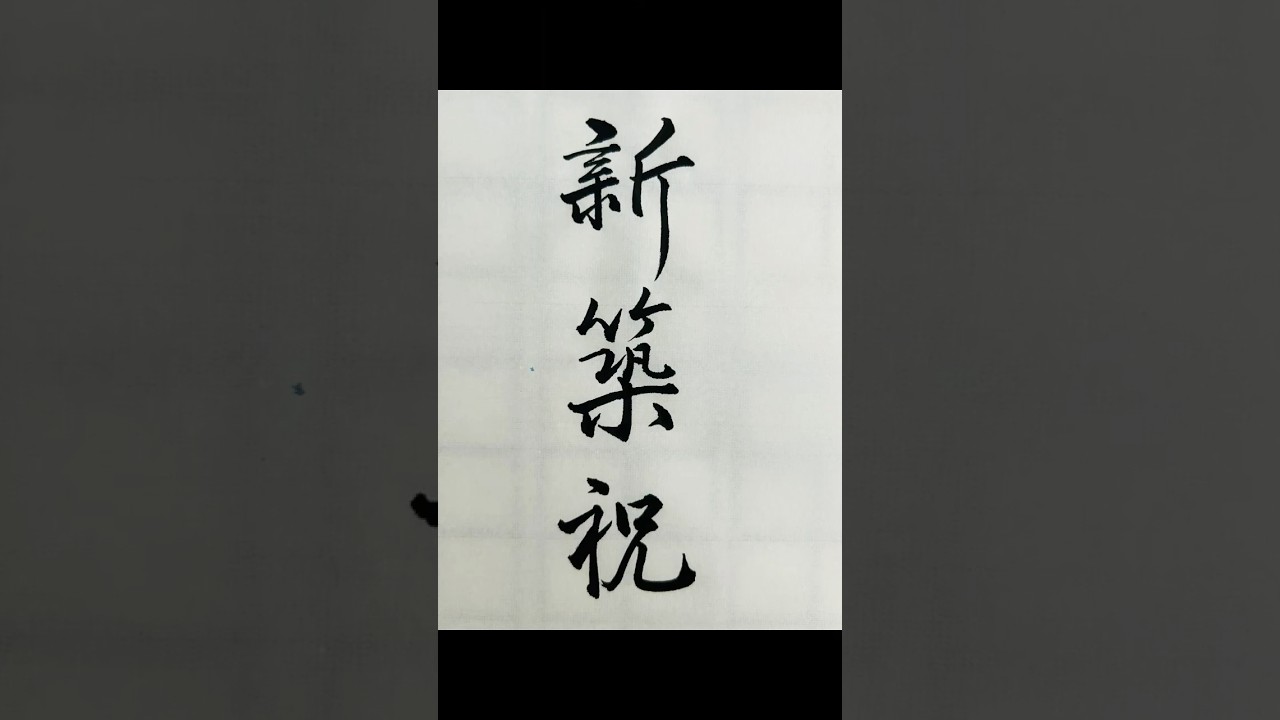 新築祝